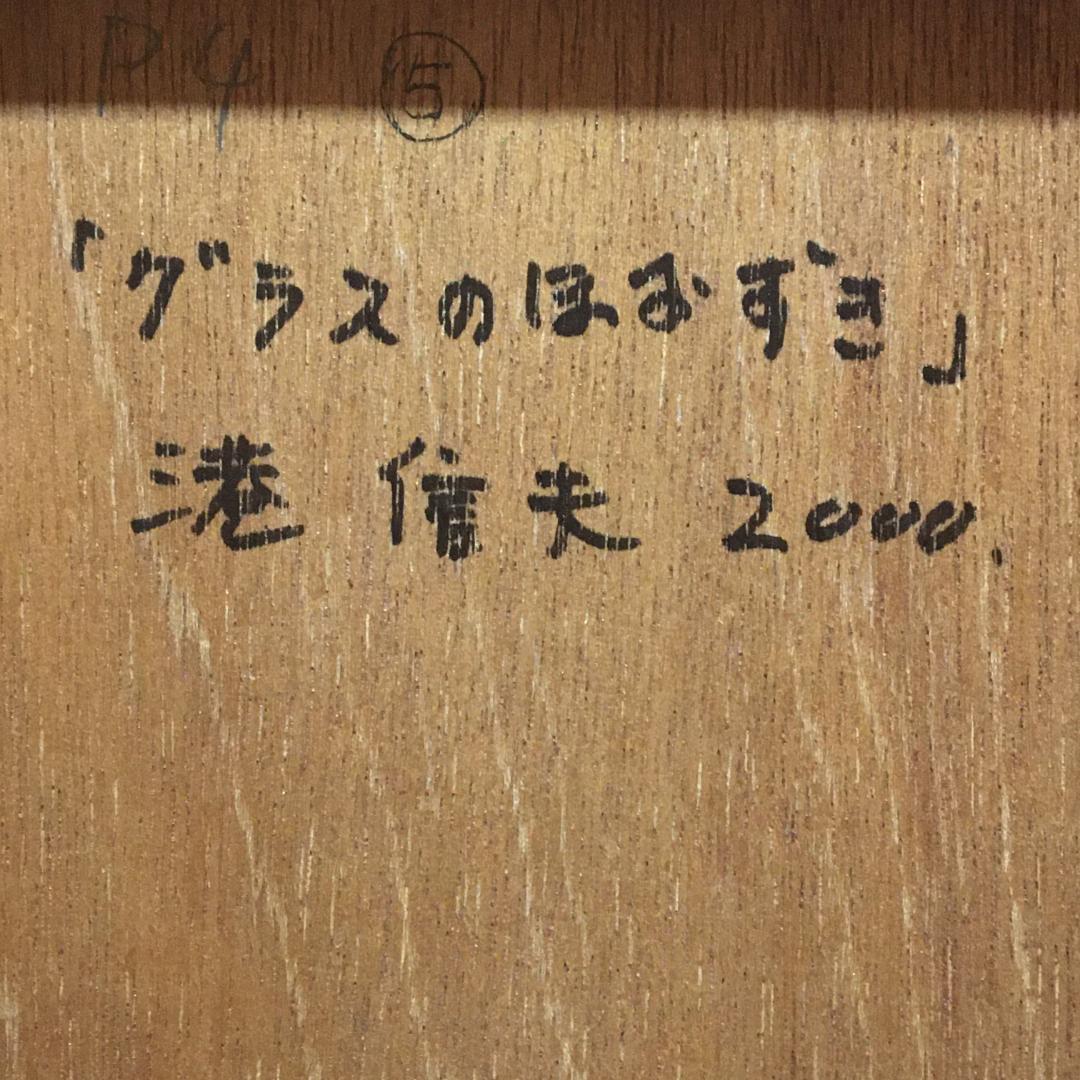 P4 ⑤
「グラスのほおずき」
港 信夫 2000.